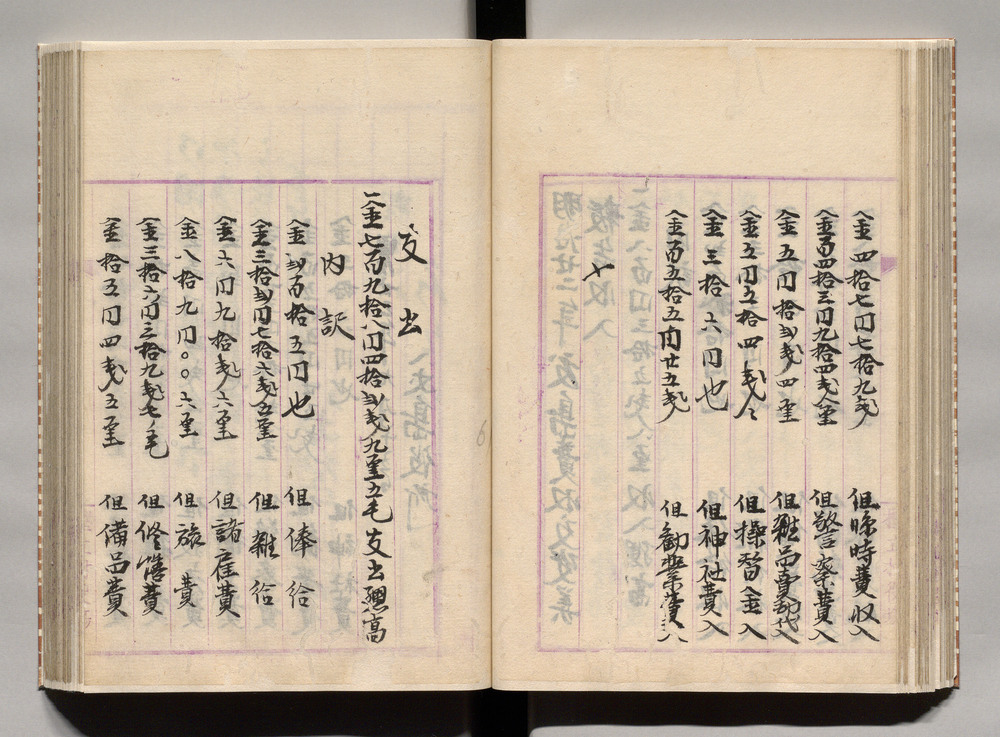 金四拾七円七拾九戋 但臨時費収入
金百四拾三円九拾四戋八厘 但警察費入
金五円拾弐戋四厘 但雑品売却代入
金五円五拾四戋八 但操替金入
金三拾六円也 但神社費入
金百五拾五円廿五戋 但勧業費入
〆
支出
一金七百九拾八円四拾弐戋九厘五毛 支出惣高
内訳
金弐百拾五円也 但俸給
金三拾弐円七拾六戋五厘 但雑給
金六円九拾戋六厘 但諸雇費
金八拾九円〇〇六厘 但旅費
金三拾六円三拾九戋七毛 但修繕費
金拾五円四戋五厘 但備品費